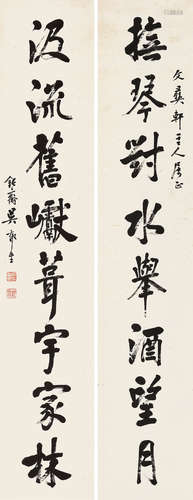 文彝軒主人屬正
撫琴對水舉酒望月
汲流舊巘葺宇家林
鈍齋吳郁生